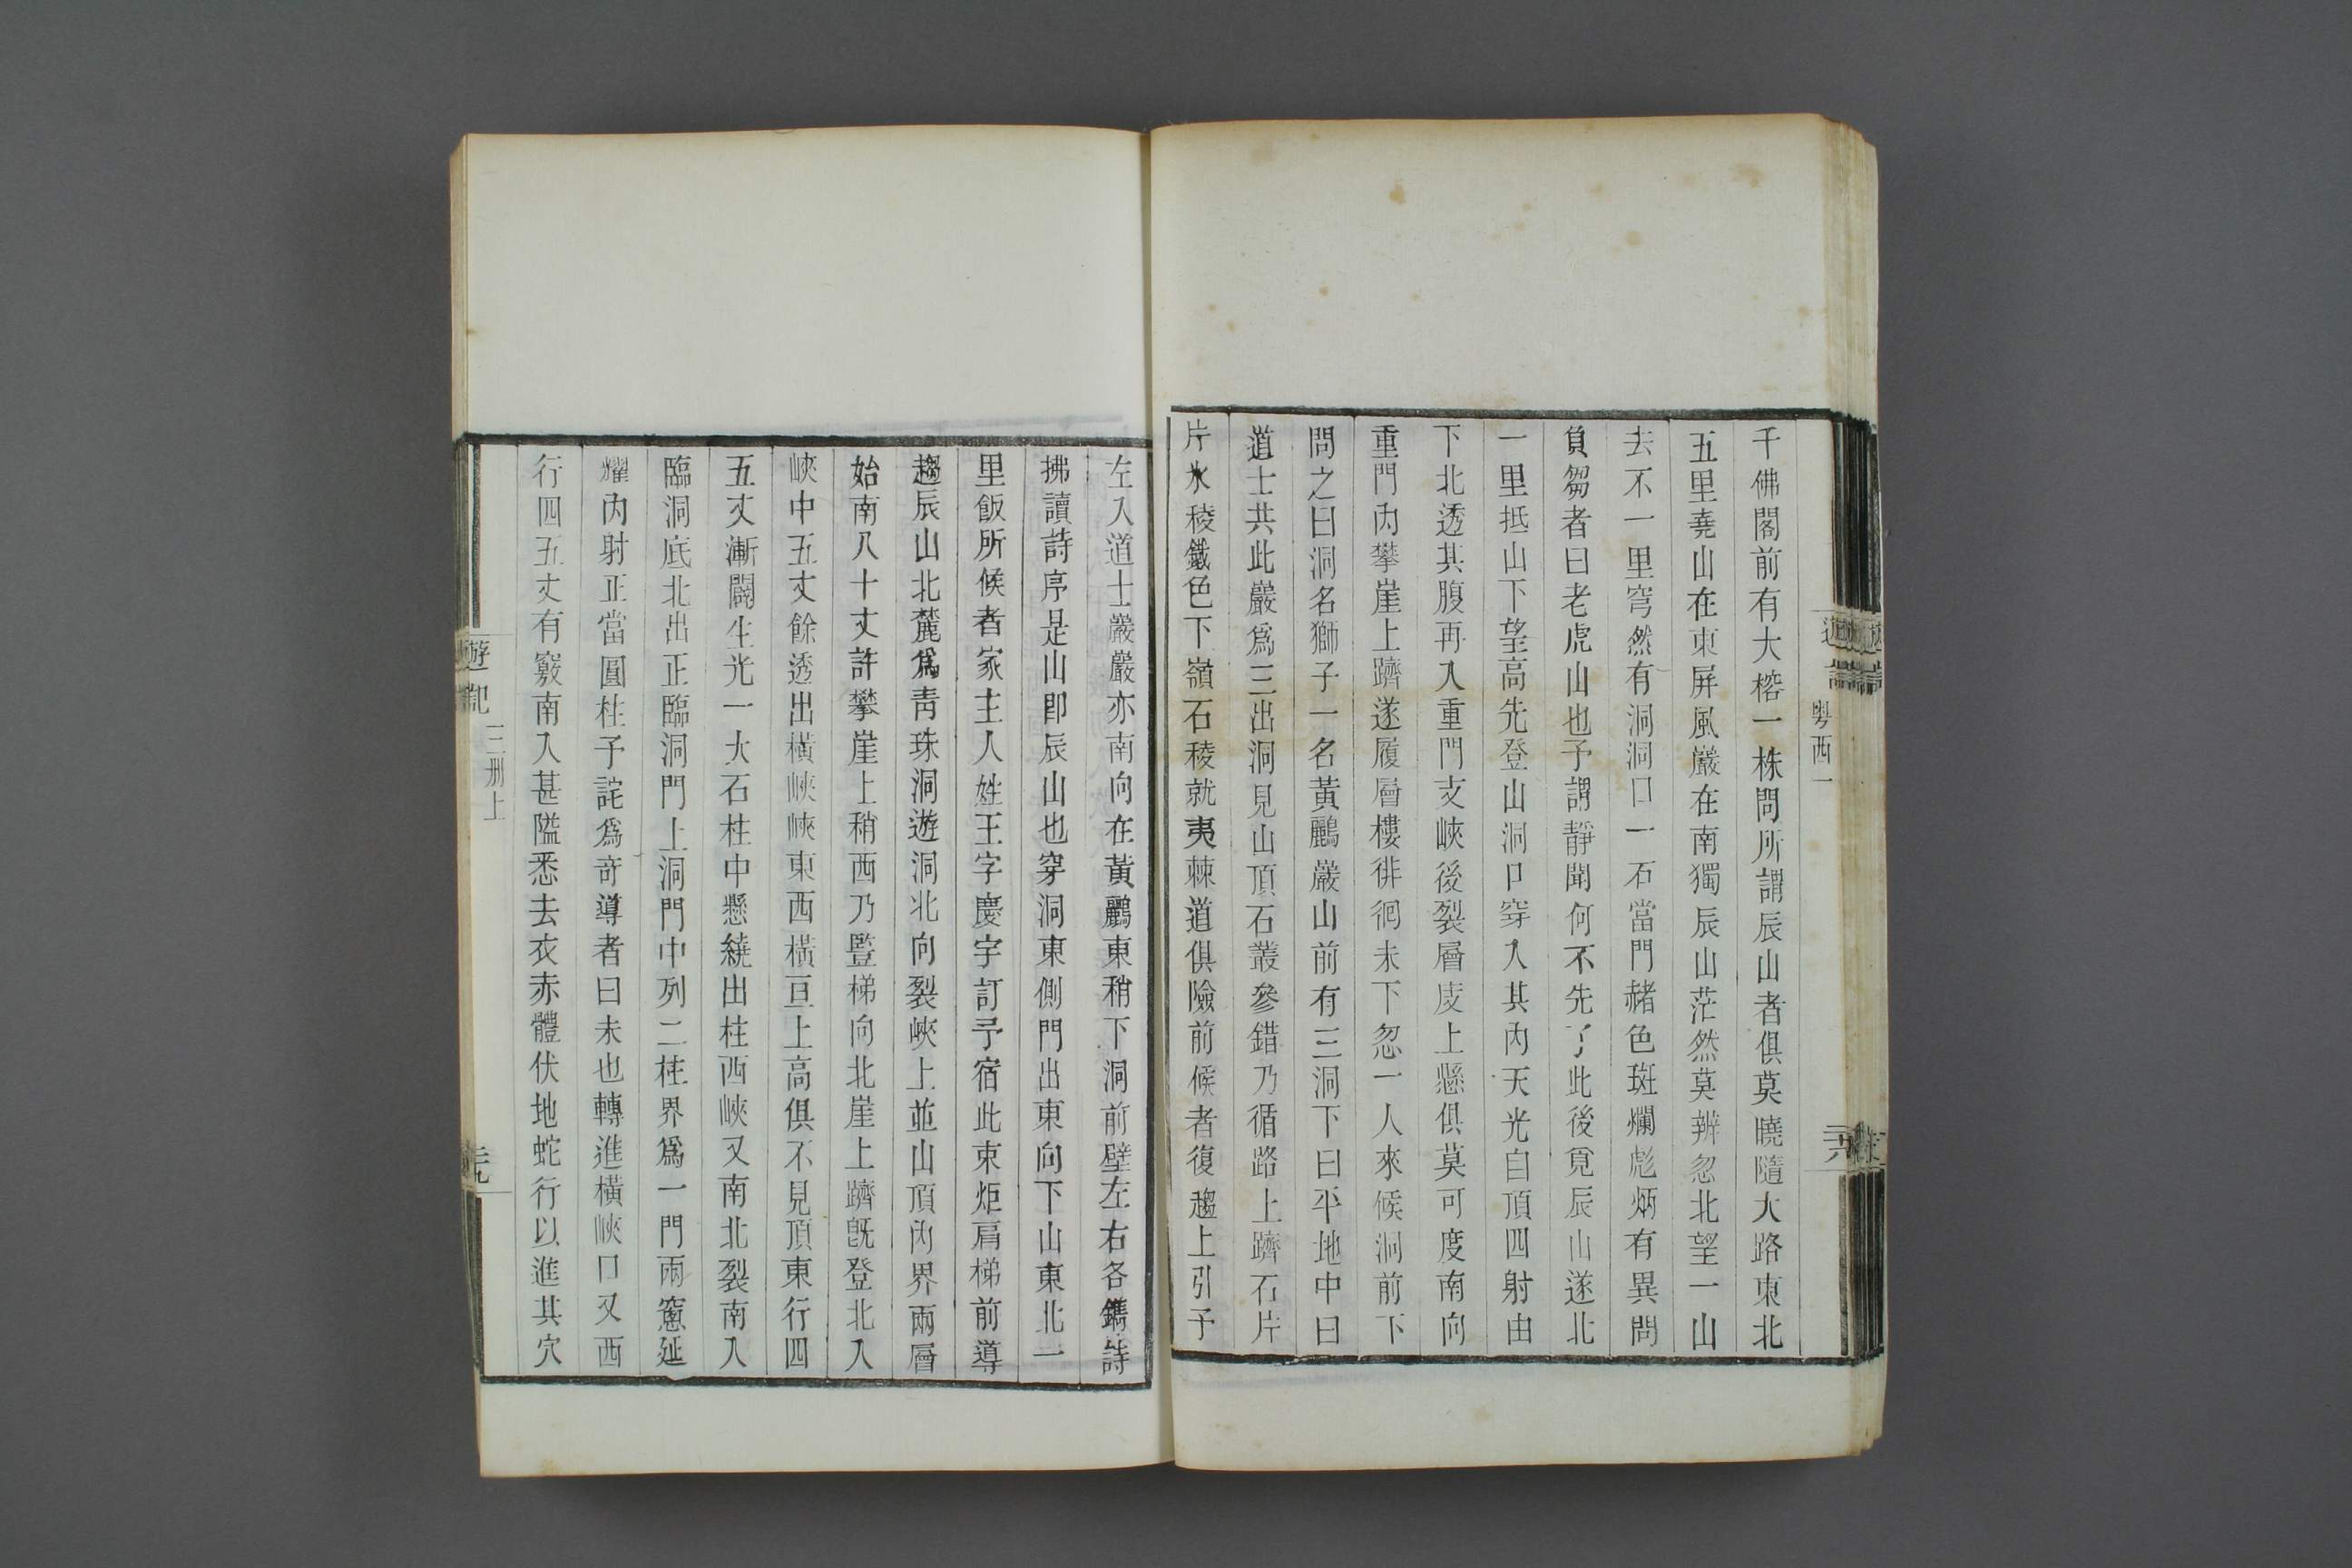 千佛閣前有大榕一株問所謂辰山者俱莫曉隨大路東北
五里堯山在東屏風巖在南獨辰山茫然莫辨忽北望一山
去不一里穹然有洞洞口一石當門赭色斑爛彪炳有異問
負芻者曰老虎山也予謂靜聞何不先了此後覓辰山遂北
一里抵山下望高先登山洞口穿入其內天光自頂四射由
下北透其腹再入重門支峽後裂層庋上懸俱莫可度南向
重門內攀崖上躋遂履層樓徘徊未下忽一人來候洞前下
問之曰洞名獅子一名黃鸝巖山前有三洞下曰平地中曰
道士共此巖爲三出洞見山頂石叢參錯乃循路上躋石片
片氷稜鐵色下嶺石稜就夷棘道俱險前候者復趨上引予
左入道士巖巖亦南向在黃鸝東稍下洞前壁左右各鐫詩
拂讀詩序是山卽辰山也穿洞東側門出東向下山東北一
里飯所候者家主人姓王字慶宇訂予宿此束炬肩梯前導
趨辰山北麓爲靑珠洞遊洞北向裂峽上並山頂內界兩層
始南八十丈許攀崖上稍西乃豎梯向北崖上躋旣登北入
峽中五丈餘透出橫峽峽東西橫亘上高俱不見頂東行四
五丈漸闢生光一大石柱中懸繞出柱西峽又南北裂南入
臨洞底北出正臨洞門上洞門中列二柱界爲一門兩窻延
耀內射正當圓柱予詫爲奇導者曰未也轉進橫峽口又西
行四五丈有竅南入甚隘悉去衣赤體伏地蛇行以進其穴
遊記
粵西一
二六
遊記
三册上